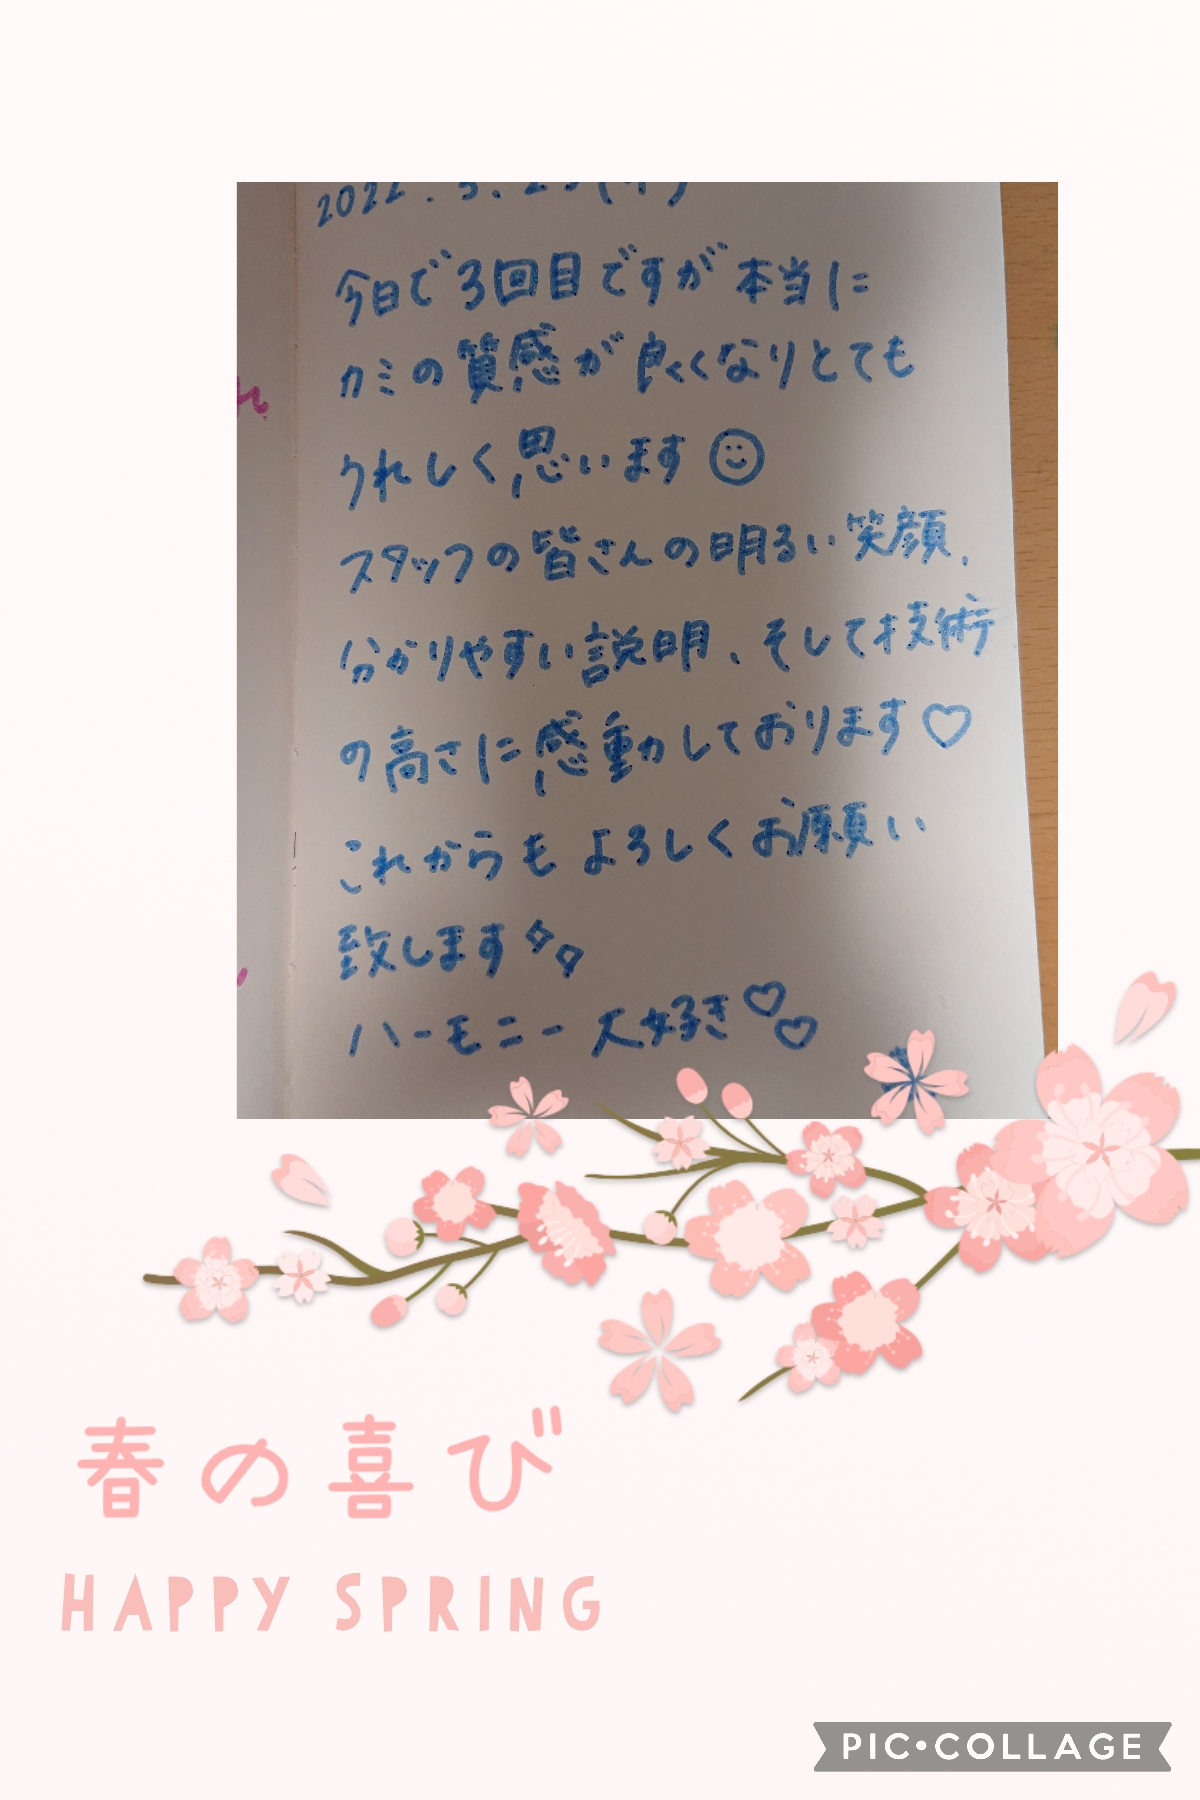 2022.
今日で3回目ですが本当に
カミの質感が良くなりとても
うれしく思います
スタッフの皆さんの明るい笑顔、
分かりやすい説明、そして技術
の高さに感動しております♡
これからもよろしくお願い
致します
ハーモニー大好き♡♡
春の喜び
HAPPY SPRING
PIC•COLLAGE